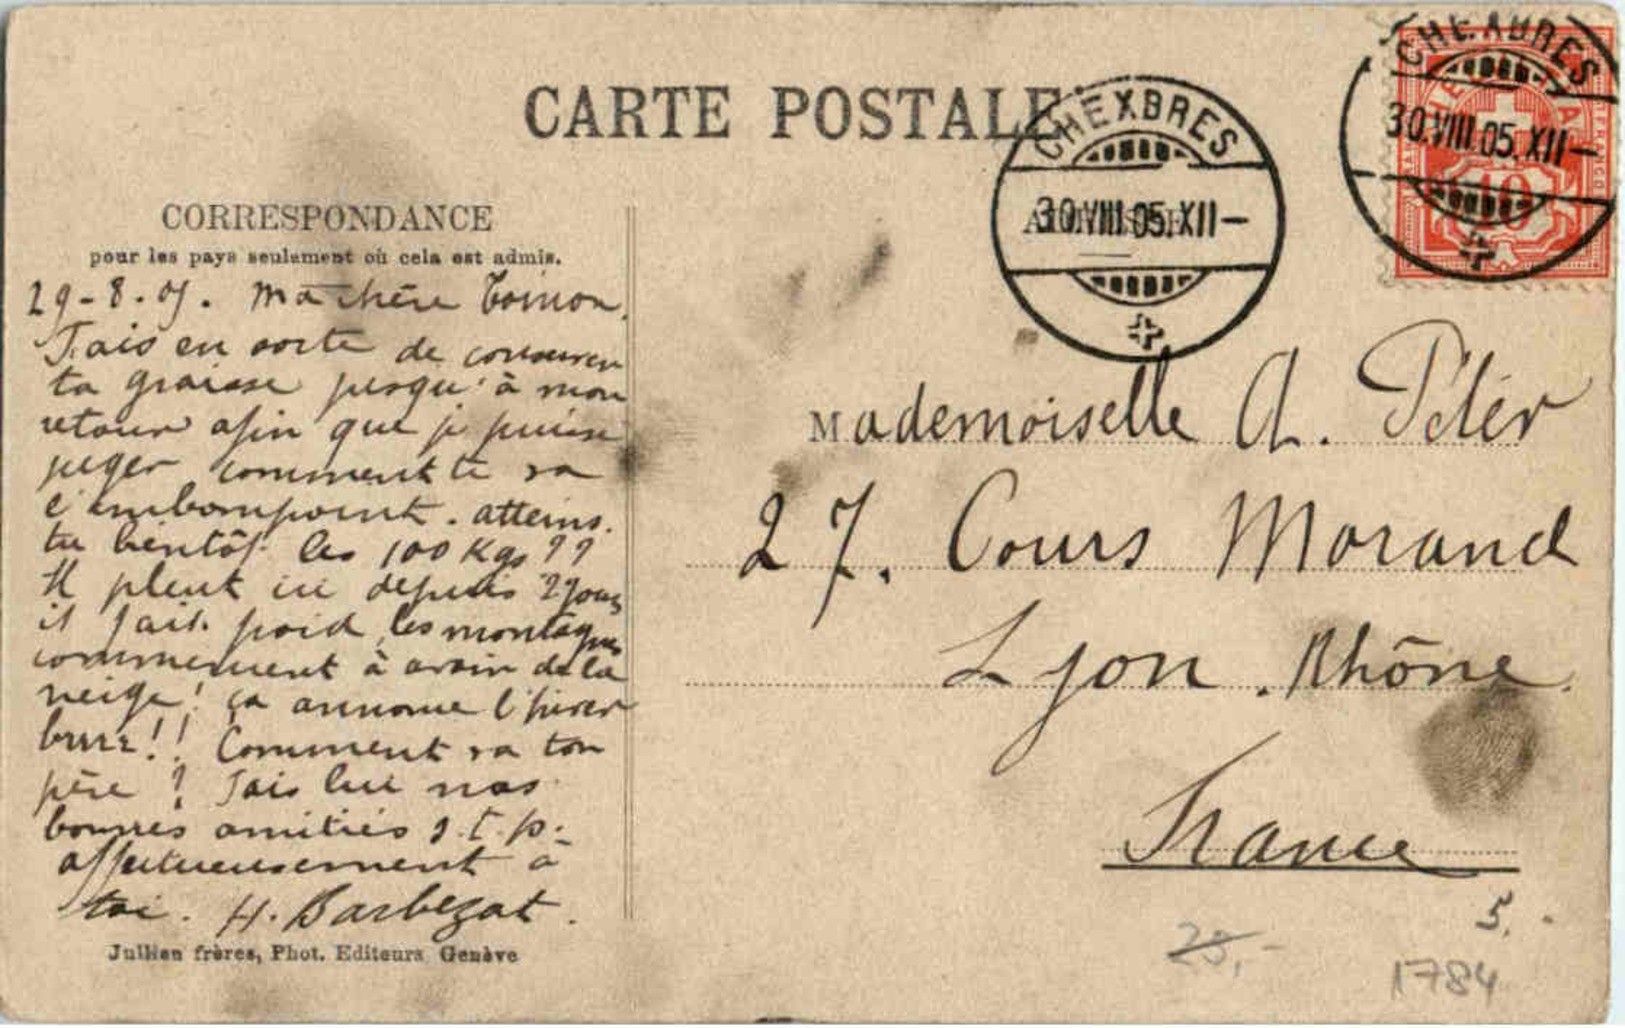 CARTE POSTALE
CORRESPONDANCE
pour les pays seulement où cela est admis.
29-8.05. Ma chère Toinon.
Fais en sorte de conserver
ta graisse jusqu'à mon
retour afin que je puisse
juger comment te va
l'embonpoint. atteins.
tu bientôt les 100 Kgs ??
Il pleut ici depuis 2 jours
il fait froid, les montagnes
commencent à avoir de la
neige! ça annonce l'hiver
brrr!! Comment va ton
père? Fais lui nos
bonnes amitiés s.t.p.
affectueusement à
toi. H. Barbezat.
Jullien frères, Phot. Editeurs Genève
CHEXBRES
30.VIII.05.XII-
CHEXBRES
30.VIII.05.XII-
FRANCO
10
Mademoiselle A. Péter
27. Cours Morand
Lyon. Rhône.
France
5.-
25,-
1784